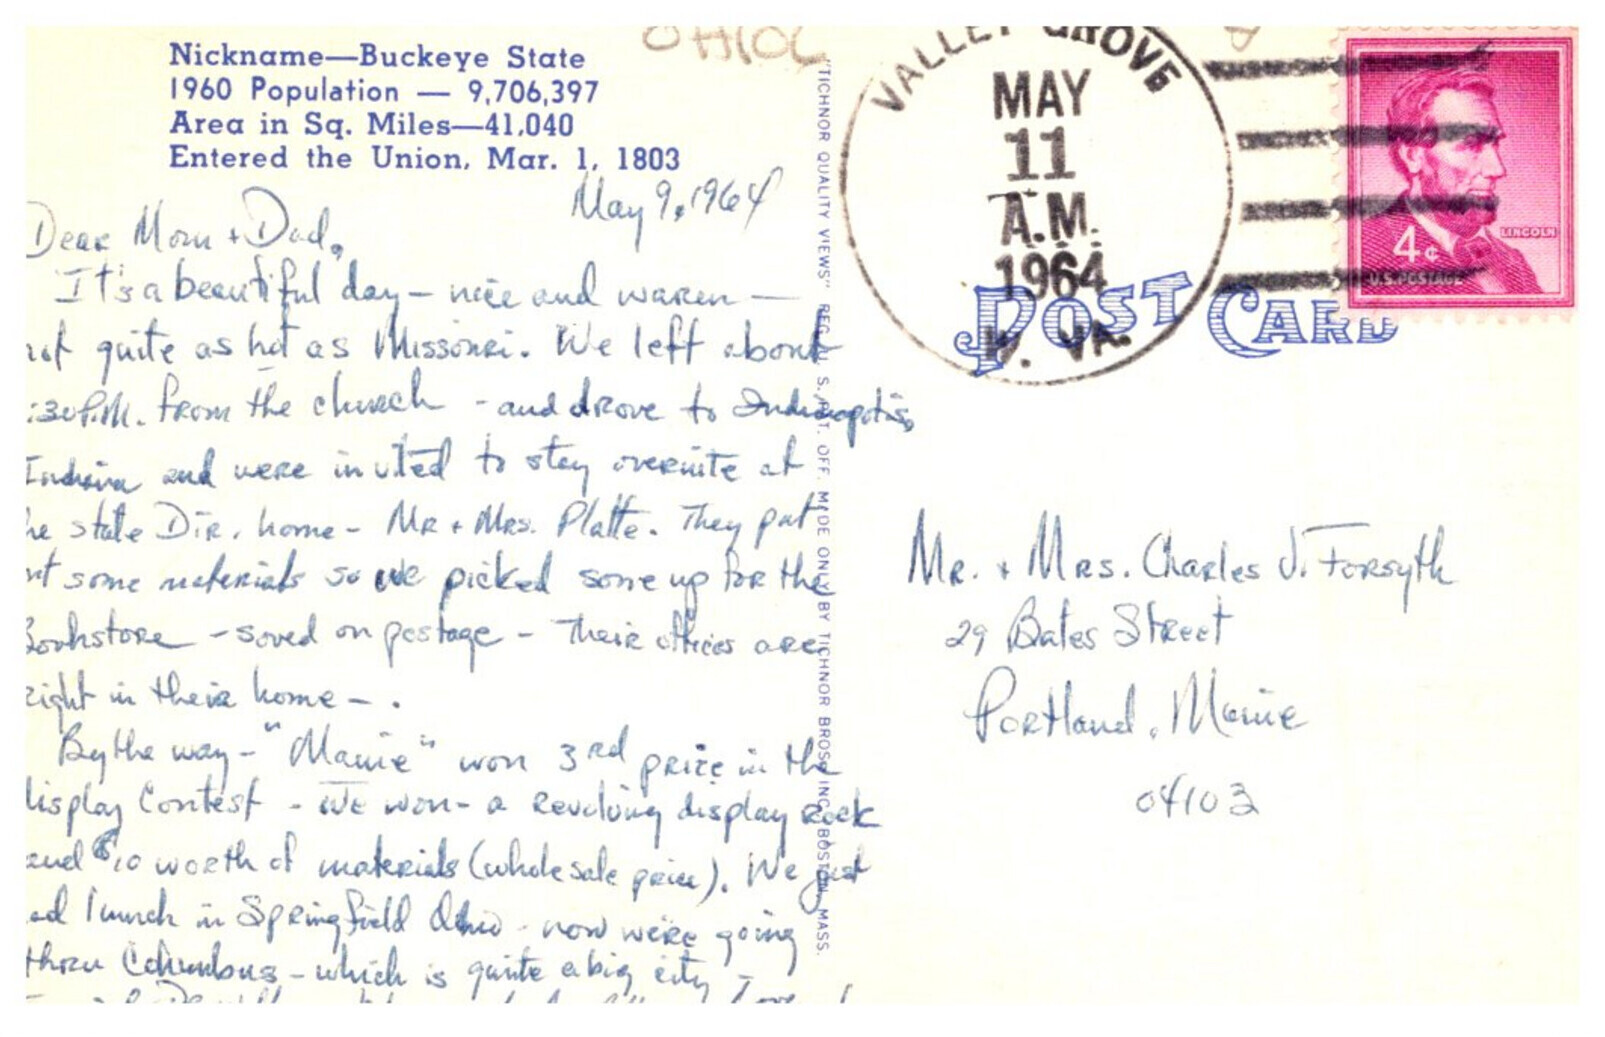 Nickname—Buckeye State
1960 Population — 9,706,397
Area in Sq. Miles—41,040
Entered the Union, Mar. 1, 1803
May 9, 1964
Dear Mom + Dad,
It's a beautiful day – nice and warm –
not quite as hot as Missouri. We left about
:30 P.M. from the church – and drove to Indianapolis,
Indiana and were invited to stay overnite at
he state Dir. home – Mr + Mrs. Platte. They put
out some materials so we picked some up for the
Bookstore – saved on postage – Their offices are
right in their home – .
By the way – "Maine" won 3rd prize in the
display Contest – We won – a revolving display rack
and $10 worth of materials (wholesale price). We just
ad lunch in Springfield Ohio – now we're going
thru Columbus – which is quite a big city
"TICHNOR QUALITY VIEWS" REG. U. S. PAT. OFF. MADE ONLY BY TICHNOR BROS. INC. BOSTON, MASS.
OHIO
VALLEY GROVE
MAY
11
A.M.
1964
W. VA.
4¢
LINCOLN
U.S. POSTAGE
POST CARD
Mr. + Mrs. Charles J. Forsyth
29 Bates Street
Portland, Maine
04103